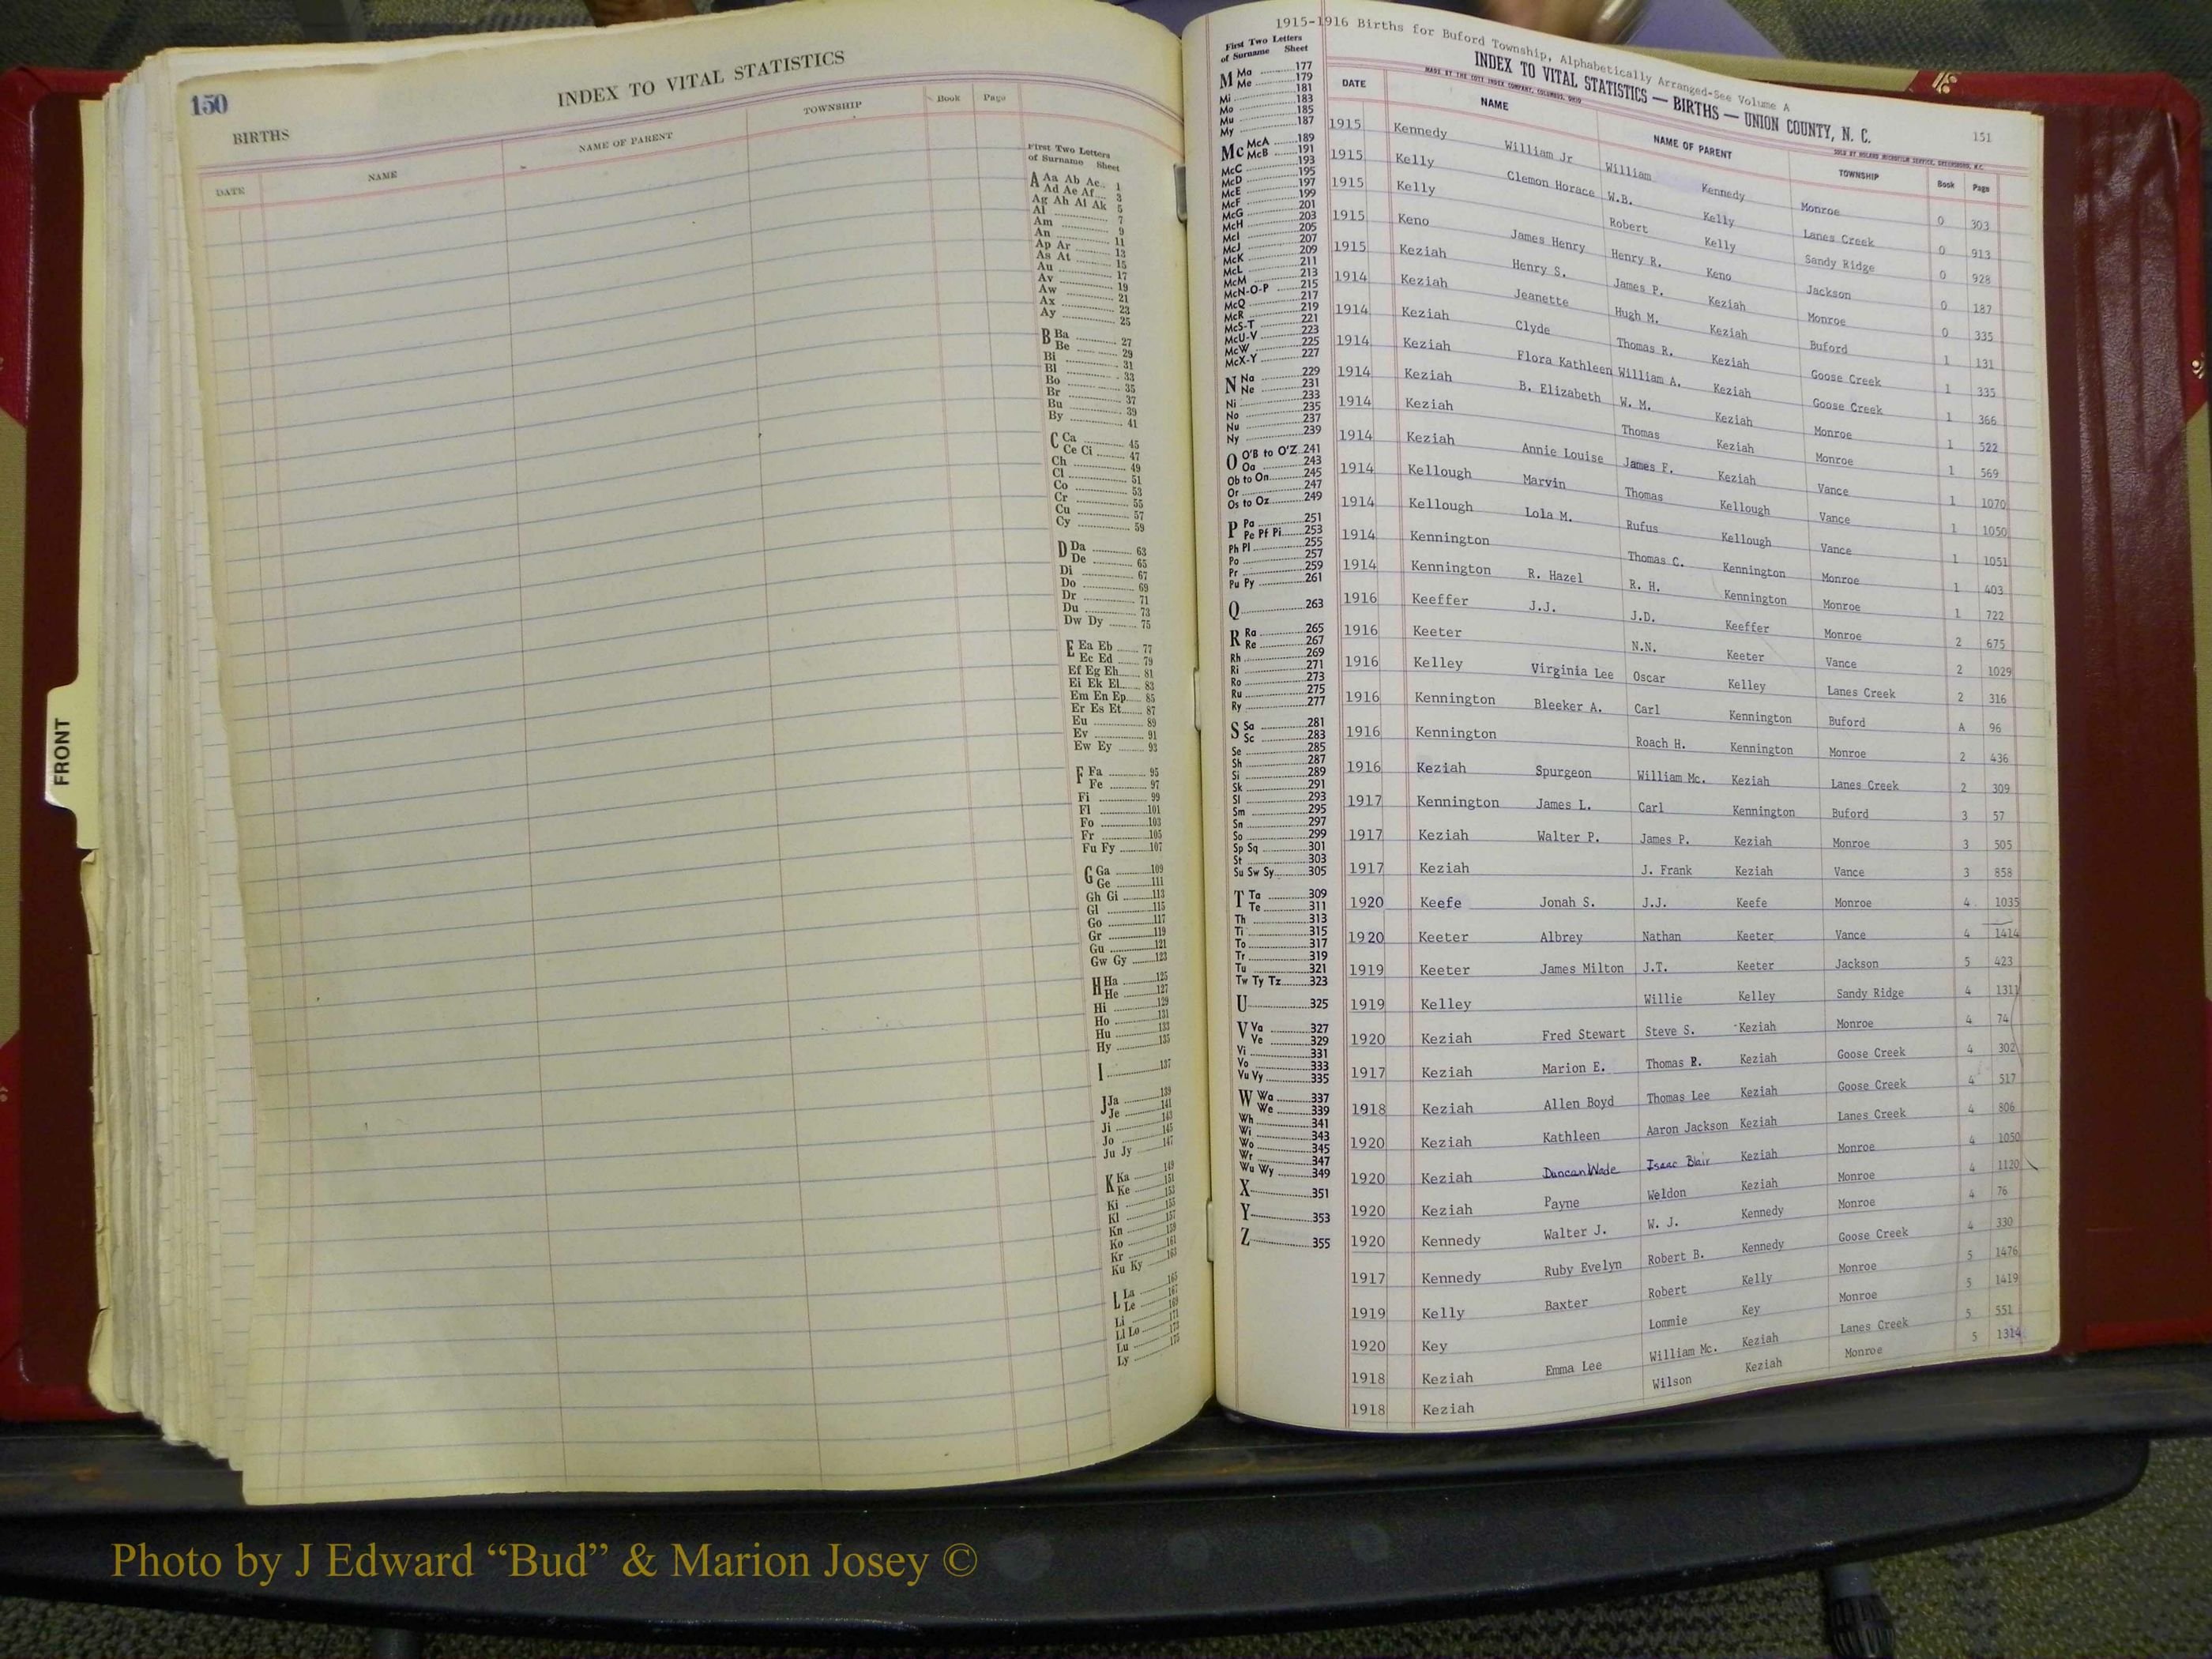 150
INDEX TO VITAL STATISTICS
BIRTHS
DATE NAME NAME OF PARENT TOWNSHIP Book Page
First Two Letters
of Surname Sheet
A Aa Ab Ac 1
Ad Ae Af 3
Ag Ah Ai Ak 5
Al 7
Am 9
An 11
Ap Ar 13
As At 15
Au 17
Av 19
Aw 21
Ax 23
Ay 25
B Ba 27
Be 29
Bi 31
Bl 33
Bo 35
Br 37
Bu 39
By 41
C Ca 45
Ce Ci 47
Ch 49
Cl 51
Co 53
Cr 55
Cu 57
Cy 59
D Da 63
De 65
Di 67
Do 69
Dr 71
Du 73
Dw Dy 75
E Ea Eb 77
Ec Ed 79
Ef Eg Eh 81
Ei Ek El 83
Em En Ep 85
Er Es Et 87
Eu 89
Ev 91
Ew Ey 93
F Fa 95
Fe 97
Fi 99
Fl 101
Fo 103
Fr 105
Fu Fy 107
G Ga 109
Ge 111
Gh Gi 113
Gl 115
Go 117
Gr 119
Gu 121
Gw Gy 123
H Ha 125
He 127
Hi 129
Ho 131
Hu 133
Hy 135
I 137
J Ja 139
Je 141
Ji 143
Jo 145
Ju Jy 147
K Ka 149
Ke 151
Ki 153
Kl 155
Kn 157
Ko 159
Kr 161
Ku Ky 163
L La 165
Le 167
Li 169
Ll Lo 171
Lu 173
Ly 175
FRONT
1915-1916 Births for Buford Township, Alphabetically Arranged-See Volume A
INDEX TO VITAL STATISTICS — BIRTHS — UNION COUNTY, N. C.
151
MADE BY THE COTT INDEX COMPANY, COLUMBUS, OHIO
SOLD BY ROLAND MICROFILM SERVICE, GREENSBORO, N.C.
First Two Letters
of Surname Sheet
M Ma 177
Me 179
Mi 181
Mo 183
Mu 185
My 187
Mc McA 189
McB 191
McC 193
McD 195
McE 197
McF 199
McG 201
McH 203
McI 205
McJ 207
McK 209
McL 211
McM 213
McN-O-P 215
McQ 217
McR 219
McS-T 221
McU-V 223
McW 225
McX-Y 227
N Na 229
Ne 231
Ni 233
No 235
Nu 237
Ny 239
O O'B to O'Z 241
Oa 243
Ob to On 245
Or 247
Os to Oz 249
P Pa 251
Pe Pf Pi 253
Ph Pl 255
Po 257
Pr 259
Pu Py 261
Q 263
R Ra 265
Re 267
Rh 269
Ri 271
Ro 273
Ru 275
Ry 277
S Sa 281
Sc 283
Se 285
Sh 287
Si 289
Sk 291
Sl 293
Sm 295
Sn 297
So 299
Sp Sq 301
St 303
Su Sw Sy 305
T Ta 309
Te 311
Th 313
Ti 315
To 317
Tr 319
Tu 321
Tw Ty Tz 323
U 325
V Va 327
Ve 329
Vi 331
Vo 333
Vu Vy 335
W Wa 337
We 339
Wh 341
Wi 343
Wo 345
Wr 347
Wu Wy 349
X 351
Y 353
Z 355
DATE NAME NAME OF PARENT TOWNSHIP Book Page
1915 Kennedy William Jr William Kennedy Monroe 0 303
1915 Kelly Clemon Horace W.B. Kelly Lanes Creek 0 913
1915 Kelly Robert Kelly Sandy Ridge 0 928
1915 Keno James Henry Henry R. Keno Jackson 0 187
1915 Keziah Henry S. James P. Keziah Monroe 0 335
1914 Keziah Jeanette Hugh M. Keziah Buford 1 131
1914 Keziah Clyde Thomas R. Keziah Goose Creek 1 335
1914 Keziah Flora Kathleen William A. Keziah Goose Creek 1 366
1914 Keziah B. Elizabeth W. M. Keziah Monroe 1 522
1914 Keziah Thomas Keziah Monroe 1 569
1914 Keziah Annie Louise James F. Keziah Vance 1 1070
1914 Kellough Marvin Thomas Kellough Vance 1 1050
1914 Kellough Lola M. Rufus Kellough Vance 1 1051
1914 Kennington Thomas C. Kennington Monroe 1 403
1914 Kennington R. Hazel R. H. Kennington Monroe 1 722
1916 Keeffer J.J. J.D. Keeffer Monroe 2 675
1916 Keeter N.N. Keeter Vance 2 1029
1916 Kelley Virginia Lee Oscar Kelley Lanes Creek 2 316
1916 Kennington Bleeker A. Carl Kennington Buford A 96
1916 Kennington Roach H. Kennington Monroe 2 436
1916 Keziah Spurgeon William Mc. Keziah Lanes Creek 2 309
1917 Kennington James L. Carl Kennington Buford 3 57
1917 Keziah Walter P. James P. Keziah Monroe 3 505
1917 Keziah J. Frank Keziah Vance 3 858
1920 Keefe Jonah S. J.J. Keefe Monroe 4 1035
1920 Keeter Albrey Nathan Keeter Vance 4 1414
1919 Keeter James Milton J.T. Keeter Jackson 5 423
1919 Kelley Willie Kelley Sandy Ridge 4 1311
1920 Keziah Fred Stewart Steve S. Keziah Monroe 4 74
1917 Keziah Marion E. Thomas R. Keziah Goose Creek 4 302
1918 Keziah Allen Boyd Thomas Lee Keziah Goose Creek 4 517
1920 Keziah Kathleen Aaron Jackson Keziah Lanes Creek 4 806
1920 Keziah Duncan Wade Isaac Blair Keziah Monroe 4 1050
1920 Keziah Payne Weldon Keziah Monroe 4 1120
1920 Kennedy Walter J. W. J. Kennedy Monroe 4 76
1917 Kennedy Ruby Evelyn Robert B. Kennedy Goose Creek 4 330
1919 Kelly Baxter Robert Kelly Monroe 5 1476
1920 Key Lommie Key Monroe 5 1419
1918 Keziah Emma Lee William Mc. Keziah Lanes Creek 5 551
1918 Keziah Wilson Keziah Monroe 5 1314
Photo by J Edward “Bud” & Marion Josey ©